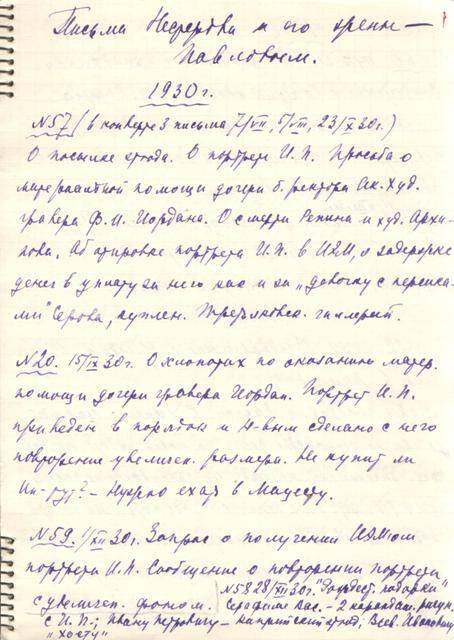 Письма Нестерова и его
Павловым.
1930 г.
№57 (в конверте 3 письма 7/VII, /VII, 23/X 30г.)
О посылке этюда. О портрете И.П. Просьба о
материальной помощи дочери б. ректора Ак. худ.
гравера Ф.И. Иордана. О смерти Репина и худ. Архи-
пова. Об отправке портрета И.П. в ИЭМ, о задержке
денег в уплату за него как и за „девочку с персика-
ми" Серова, куплен. Третьяковск. галлереей.
№20. 15/IX 30г. О хлопотах по оказанию матер.
помощи дочери гравера Иордан. Портрет И.П.
приведен в порядок и Н-вым сделано с него
повторение увеличен. размера. Не купит ли
Ин-тут? – Нужно ехать в Мацесту.
№59. 1/XII 30г. Запрос о получении ИЭМом
портрета И.П. Сообщение о повторении портрета
с увеличен. фоном. №58 28/XII 30г. подарки"
Серафиме Вас. – 2 карандаш. рисун.
с И.П.; Ивану Петровичу – этюд; Всев. Ивановичу
"Хосту"